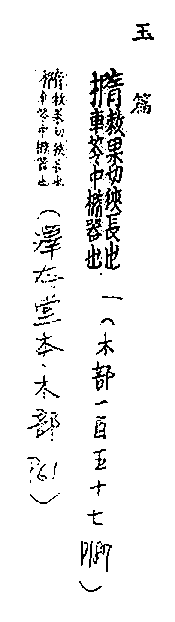 玉篇
楕敕果切狹長也
車笭中楕器也
一(木部一百五十七)
楕敕果切狹長也
車笭中楕器也
(澤存堂本·木部 P61)